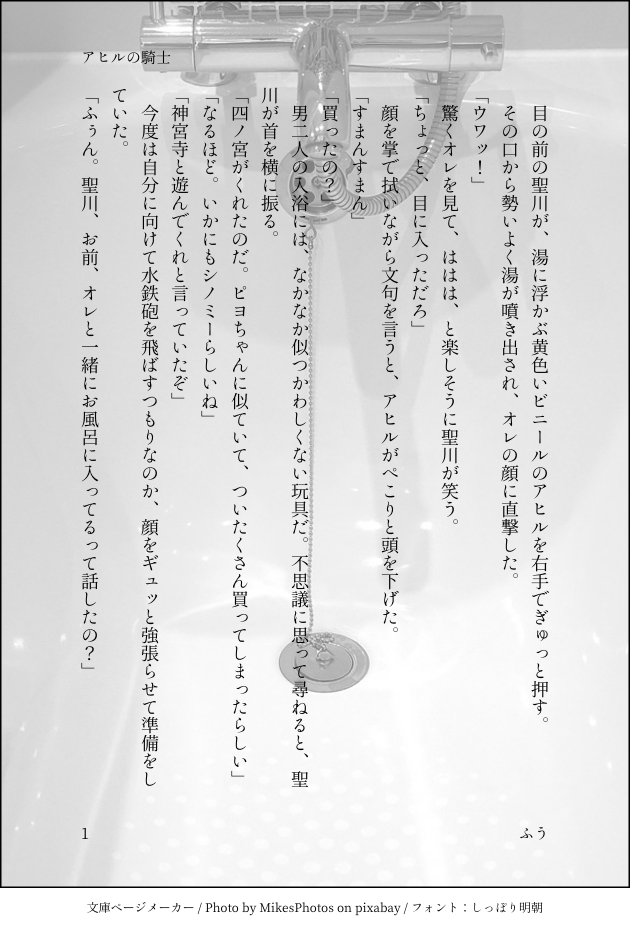 アヒルの騎士
目の前の聖川が、湯に浮かぶ黄色いビニールのアヒルを右手でぎゅっと押す。
その口から勢いよく湯が噴き出され、オレの顔に直撃した。
「ウワッ！」
驚くオレを見て、ははは、と楽しそうに聖川が笑う。
「ちょっと、目に入っただろ」
顔を掌で拭いながら文句を言うと、アヒルがぺこりと頭を下げた。
「すまんすまん」
「買ったの？」
男二人の入浴には、なかなか似つかわしくない玩具だ。不思議に思って尋ねると、聖
川が首を横に振る。
「四ノ宮がくれたのだ。ピヨちゃんに似ていて、ついたくさん買ってしまったらしい」
「なるほど。いかにもシノミーらしいね」
「神宮寺と遊んでくれと言っていたぞ」
今度は自分に向けて水鉄砲を飛ばすつもりなのか、顔をギュッと強張らせて準備をし
ていた。
「ふぅん。聖川、お前、オレと一緒にお風呂に入ってるって話したの？」
ふう
1
文庫ページメーカー / Photo by MikesPhotos on pixabay / フォント：しっぽり明朝